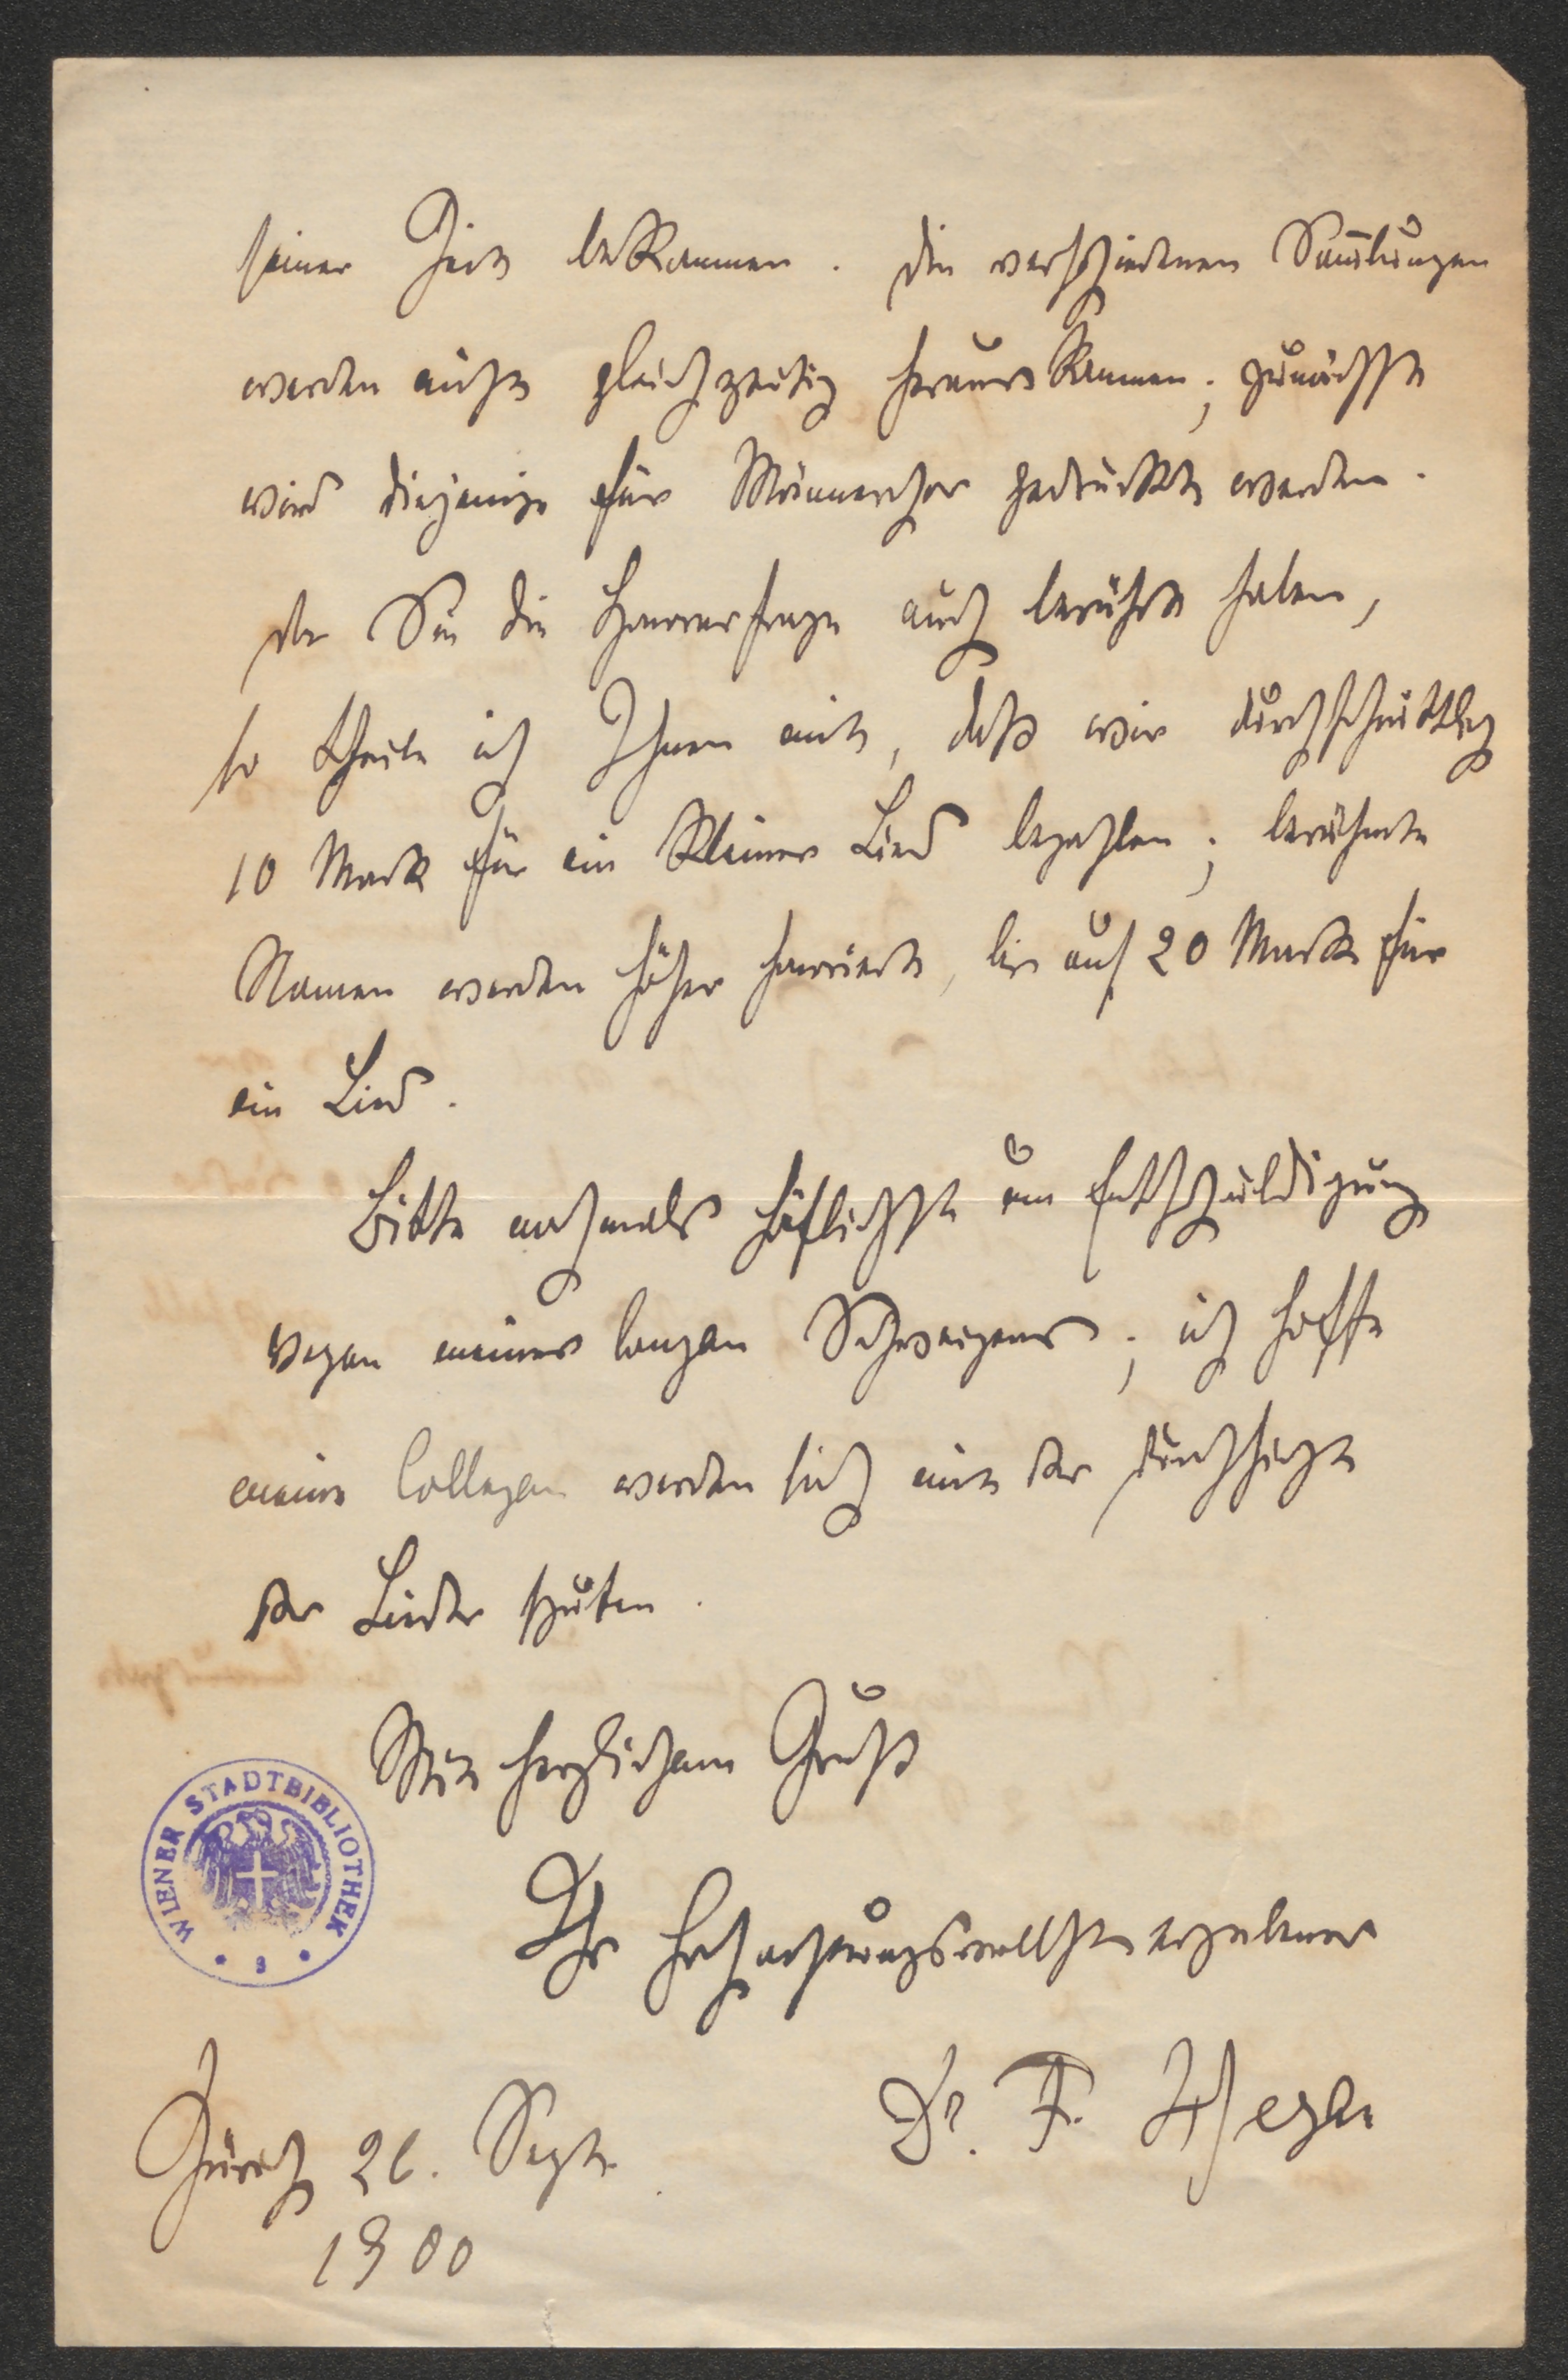 seiner Zeit bekommen. Die verschiedenen Sam̄lungen
werden nicht gleichzeitig herauskommen; zunächst
wird diejenige für Männerchor gedruckt werden.
Da Sie die Honorarfrage auch berührt haben,
so theile ich Ihnen mit, daß wir durchschnittlich
10 Mark für ein kleines Lied bezahlen; berühmte
Namen werden höher honoriert, bis auf 20 Mark für
ein Lied.
Bitte nochmals höflichst um Entschuldigung
wegen meines langen Schweigens; ich hoffe
meine Collegen werden sich mit der Durchsicht
der Lieder sputen.
Mit herzlichem Gruß
Ihr hochachtungsvollst ergebener
Dr. F. Hegar
Zürich 26. Sept.
1900
WIENER STADTBIBLIOTHEK